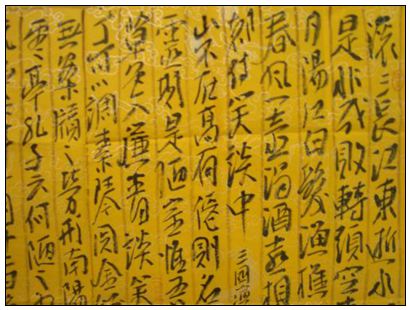 滚〻長江東逝水
是非成敗轉頭空
夕陽红白髮漁樵
春風一壶濁酒喜相
都付笑談中
三國演
山不在高有僊則名
靈斯是陋室惟吾
草色入簾青談笑
可以調素琴閲金
無案牘之勞形南陽
雲亭孔子云何陋之